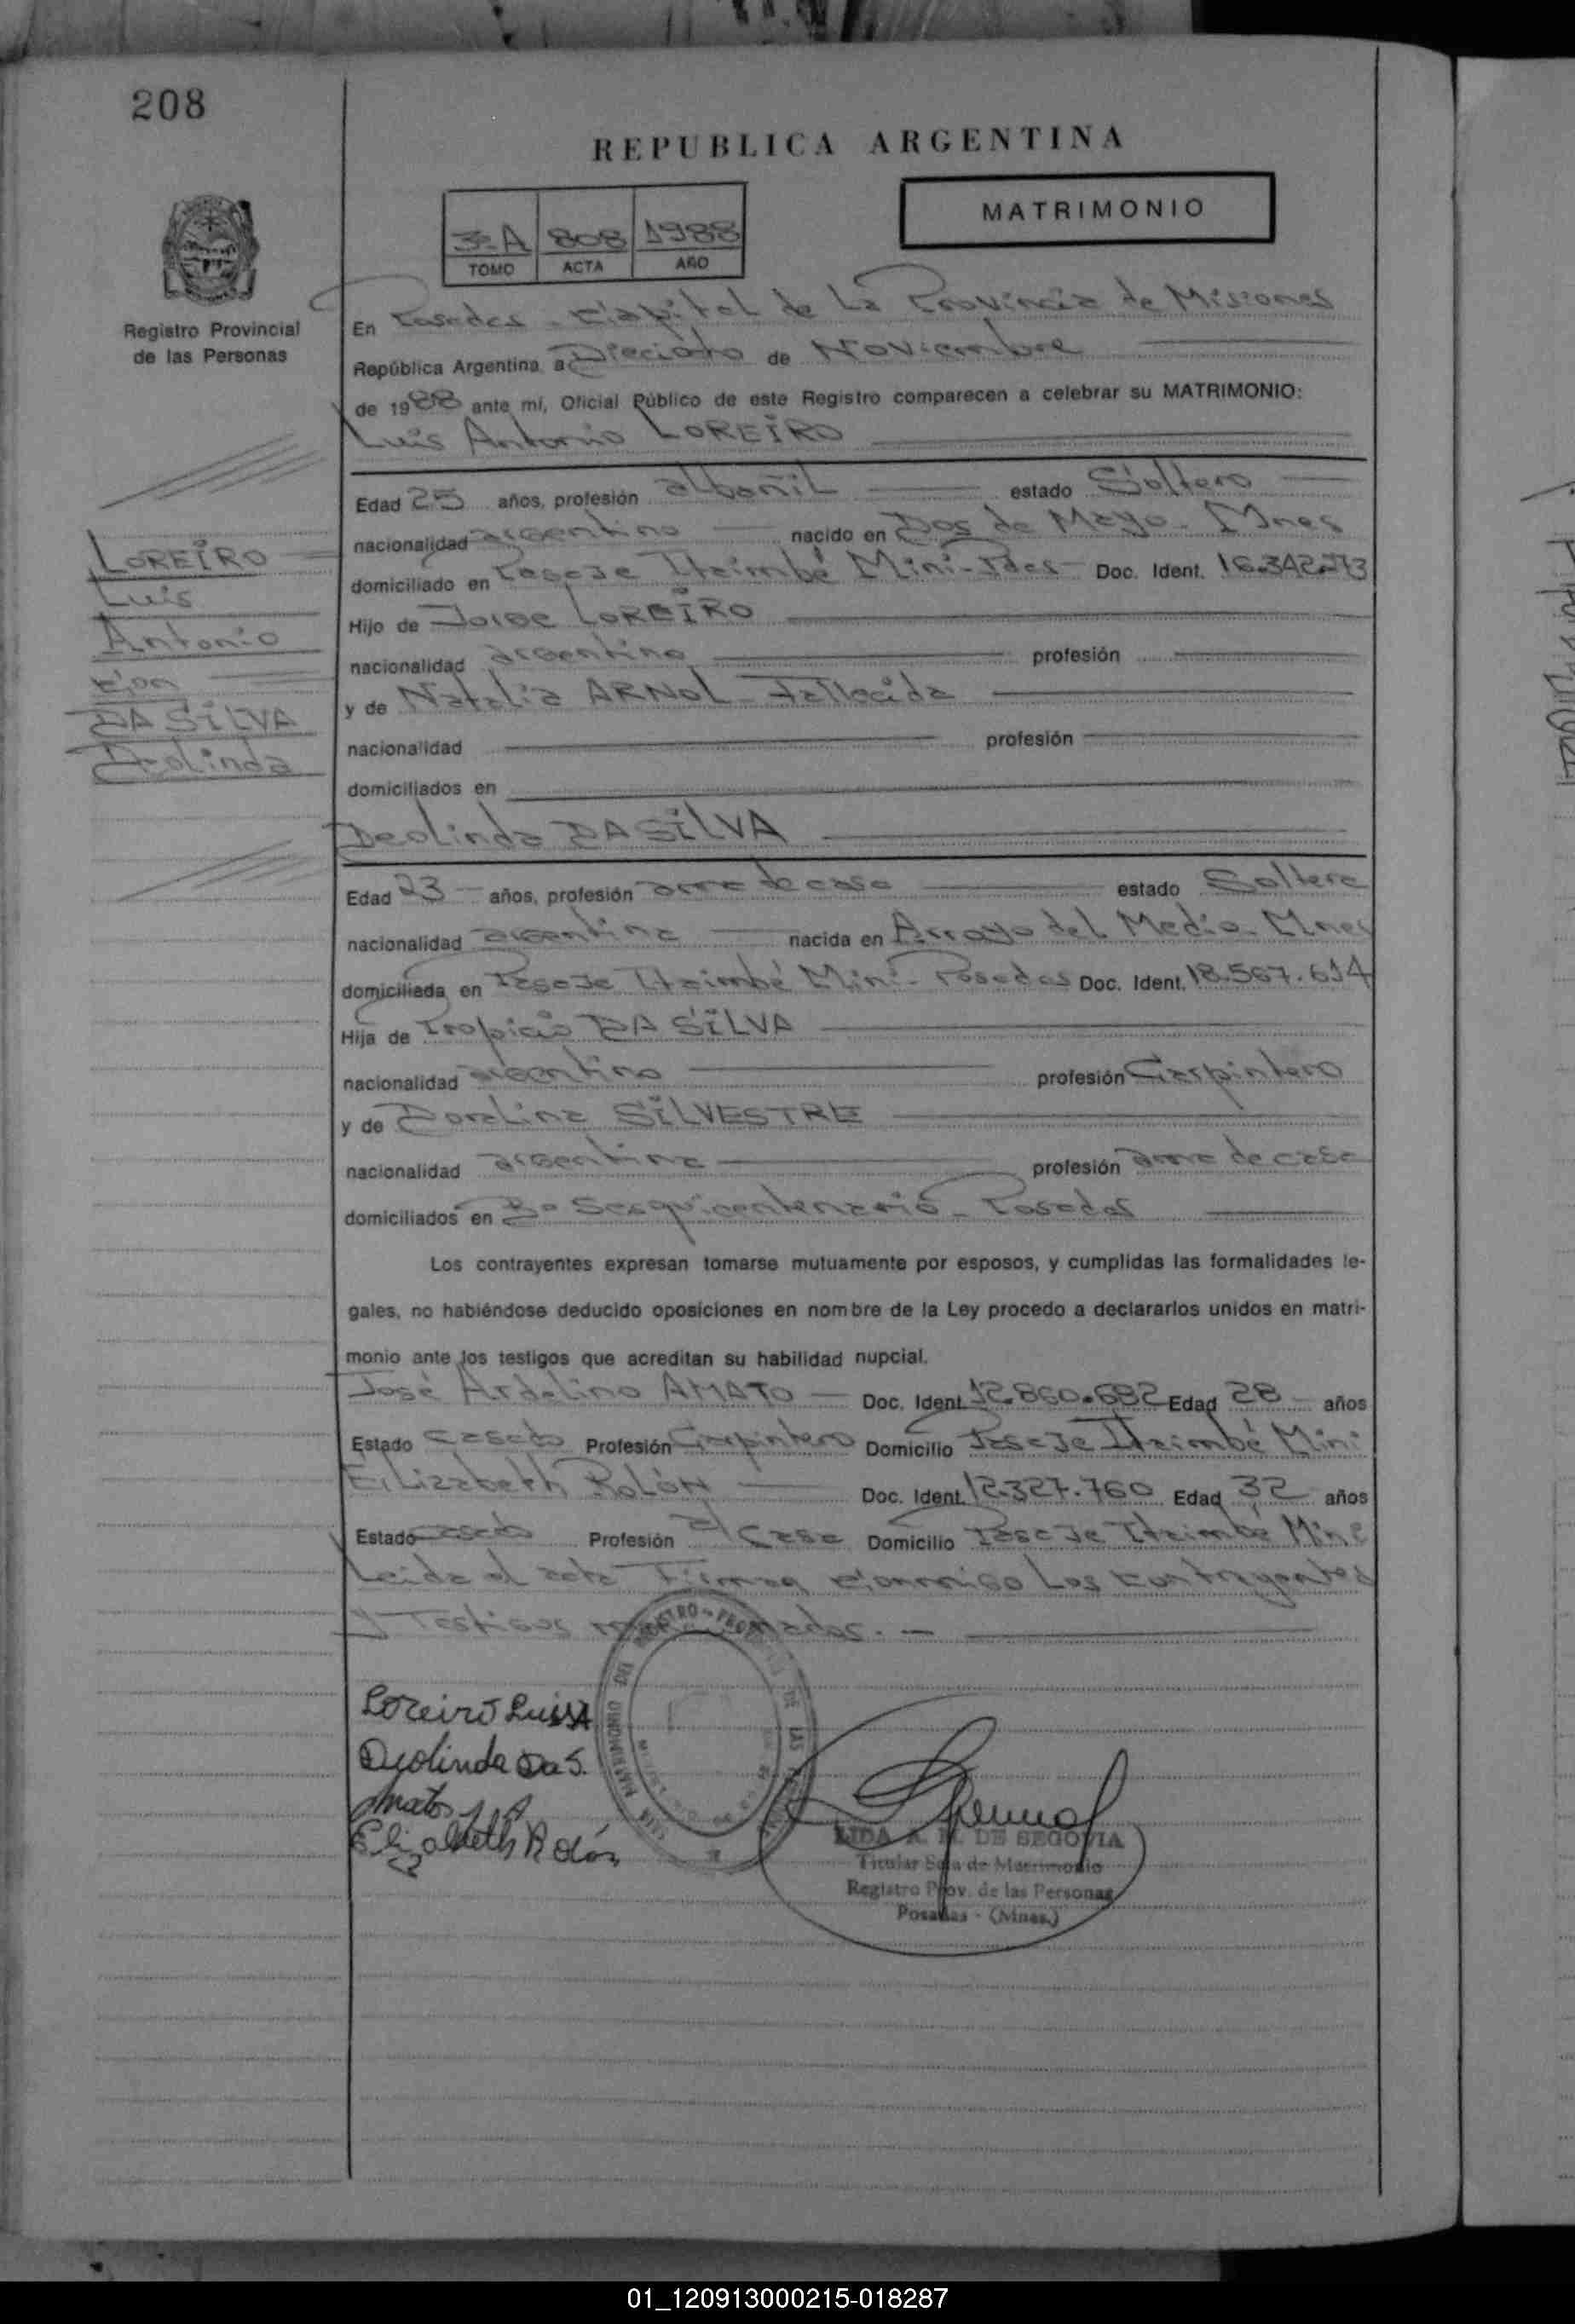 208
REPUBLICA ARGENTINA
MATRIMONIO
3º A 808 1988
TOMO ACTA AÑO
Registro Provincial
de las Personas
En Posadas - Capital de La Provincia de Misiones
República Argentina, a Dieciocho de Noviembre
de 1988 ante mí, Oficial Público de este Registro comparecen a celebrar su MATRIMONIO:
Luis Antonio LOREIRO
Edad 25 años, profesión albañil estado Soltero
nacionalidad argentino nacido en Dos de Mayo - Mnes
domiciliado en Pasaje Itaimbé Mini - Pdas Doc. Ident. 16.342.
Hijo de Jorge LOREIRO
nacionalidad argentino profesión
y de Natalia ARNOL - Fallecida
nacionalidad profesión
domiciliados en
LOREIRO
Luis
Antonio
Con
DA SILVA
Deolinda
Deolinda DA SILVA
Edad 23 años, profesión ama de casa estado Soltera
nacionalidad argentina nacida en Arroyo del Medio - Mnes
domiciliada en Pasaje Itaimbé Mini - Posadas Doc. Ident. 18.567.614
Hija de Propicio DA SILVA
nacionalidad argentino profesión Carpintero
y de Doralina SILVESTRE
nacionalidad argentina profesión ama de casa
domiciliados en Bº Sesquicentenario - Posadas
Los contrayentes expresan tomarse mutuamente por esposos, y cumplidas las formalidades le-
gales, no habiéndose deducido oposiciones en nombre de la Ley procedo a declararlos unidos en matri-
monio ante los testigos que acreditan su habilidad nupcial.
José Ardelino AMATO Doc. Ident. 12.860.682 Edad 28 años
Estado casado Profesión Carpintero Domicilio Pasaje Itaimbé Mini
Elizabeth ROLÓN Doc. Ident. 12.327.760 Edad 32 años
Estado casada Profesión a/ casa Domicilio Pasaje Itaimbé Mini
Leida el acta Firman conmigo Los contrayentes
y Testigos mencionados. -
Loreiro Luis A
Deolinda Da S.
Amato J A
Elizabeth Rolón
LIDA A. M. DE SEGOVIA
Titular Sala de Matrimonio
Registro Prov. de las Personas
Posadas - (Mnes.)
01_120913000215-018287